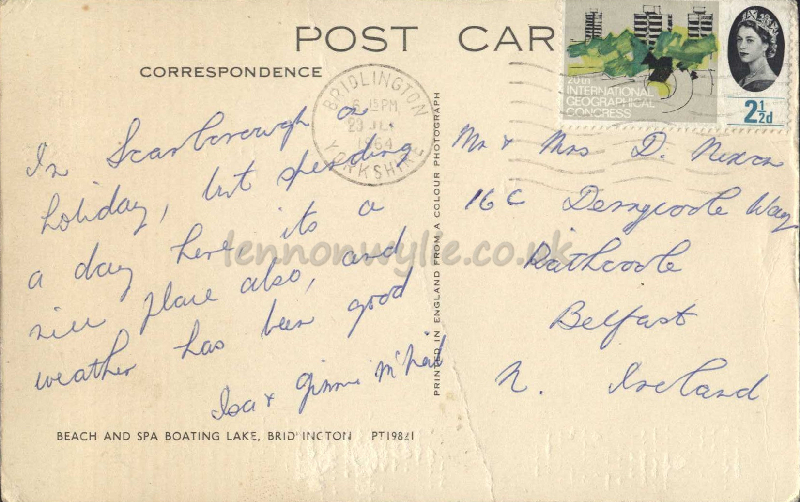 POST CAR
CORRESPONDENCE
20th
INTERNATIONAL
GEOGRAPHICAL
CONGRESS
2½d
BRIDLINGTON
6 15 PM
23 JLY
1964
YORKSHIRE
In Scarborough on
holiday, but spending
a day here its a
nice place also, and
weather has been good
Isa & Jimmie McNeil
BEACH AND SPA BOATING LAKE, BRIDLINGTON PT19821
PRINTED IN ENGLAND FROM A COLOUR PHOTOGRAPH
Mr & Mrs D. Nixon
16 C Derrycoole Way
Rathcoole
Belfast
N. Ireland
lennonwylie.co.uk